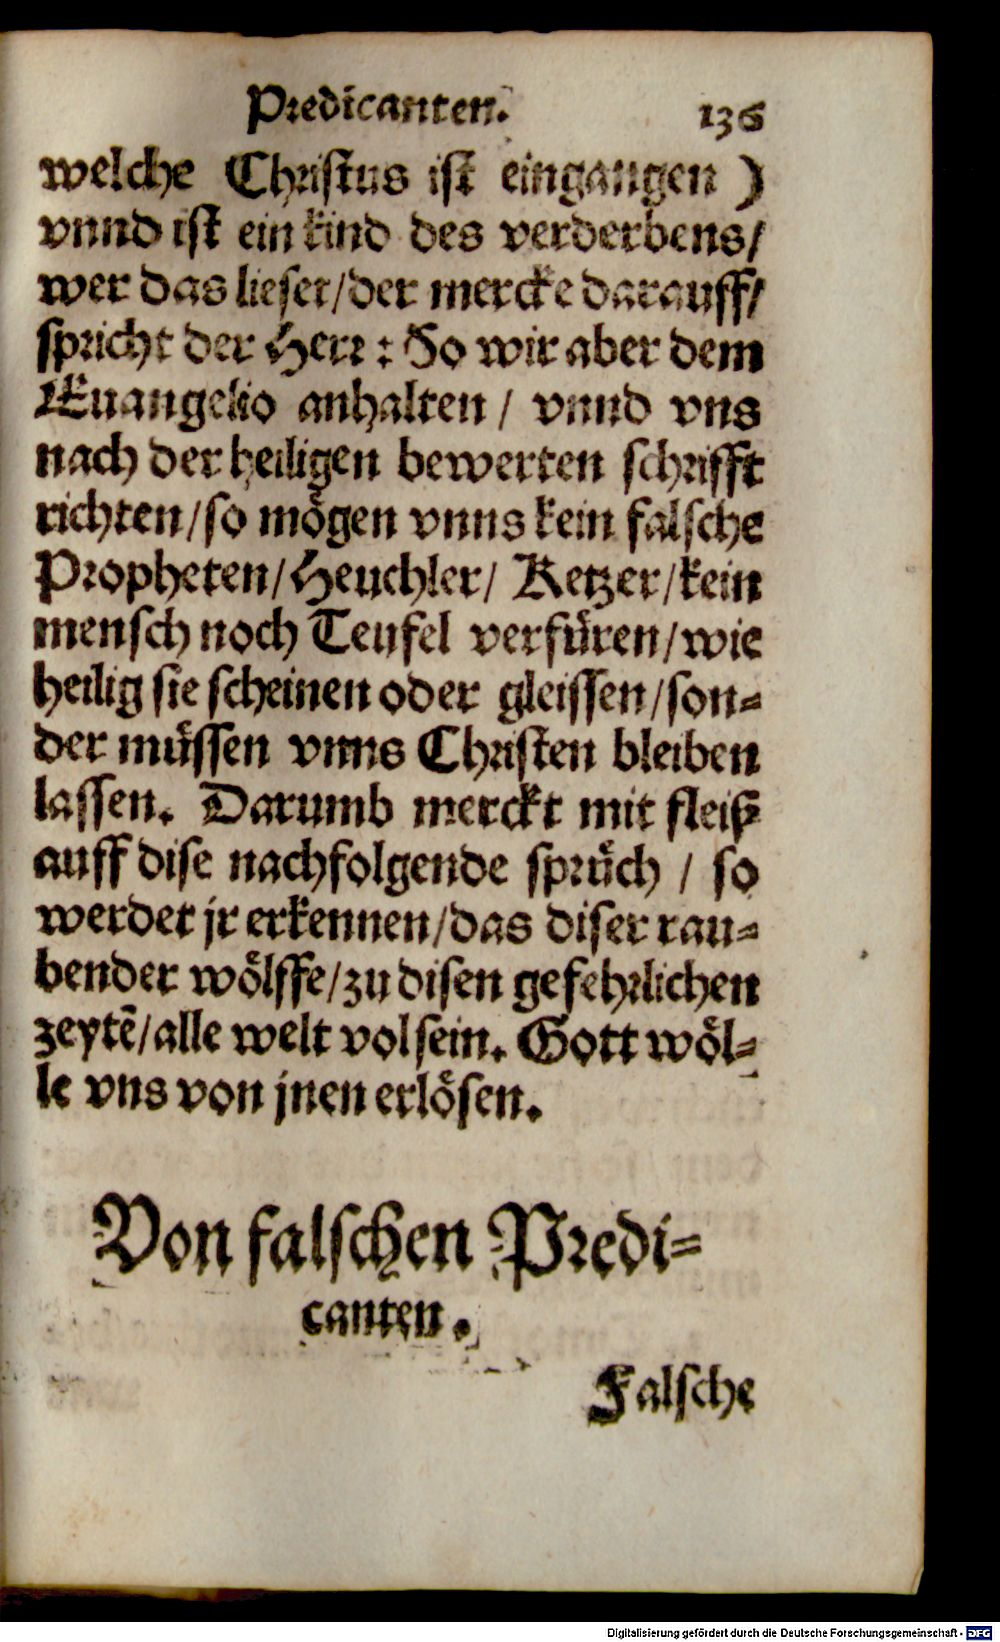 Predicanten. 136
welche Christus ist eingangen )
vnnd ist ein kind des verderbens/
wer das lieset/der mercke darauff/
spricht der Herr: So wir aber dem
Euangelio anhalten / vnnd vns
nach der heiligen bewerten schrifft
richten/so mögen vnns kein falsche
Propheten/Heuchler/ Ketzer/kein
mensch noch Teufel verfüren/wie
heilig sie scheinen oder gleissen/son-
der müssen vnns Christen bleiben
lassen. Darumb merckt mit fleiß
auff dise nachfolgende sprüch / so
werdet jr erkennen/das diser rau-
bender wölffe/zu disen gefehrlichen
zeytē/alle welt vol sein. Gott wöl-
le vns von jnen erlösen.
Von falschen Predi-
canten.
Falsche
Digitalisierung gefördert durch die Deutsche Forschungsgemeinschaft - DFG